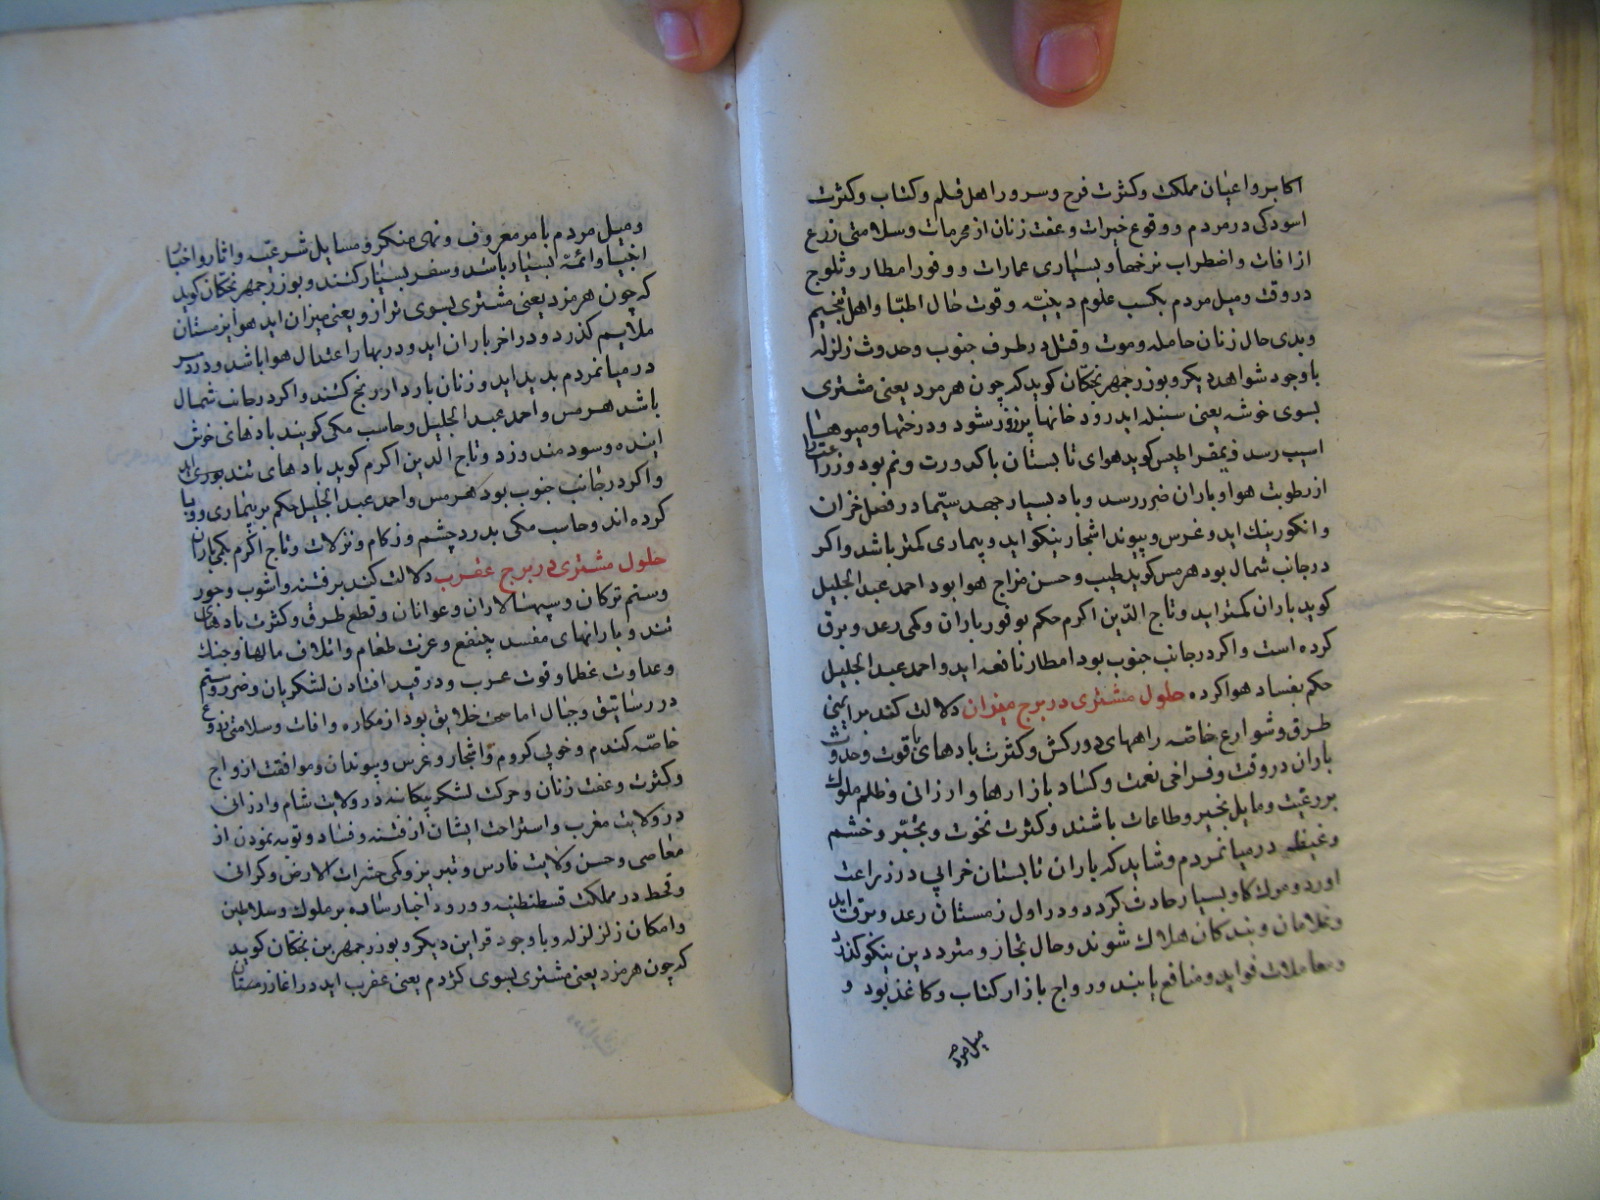 اکابر و اعیان مملکت و کثرت فرح و سرور اهل قلم و کتاب و کثرت
اسودکی در مردم و وقوع خیرات و عفت زنان از محرمات و سلامتی زرع
از افات و اضطراب نرخها و بسیاری عمارات و وفور امطار و ثلوج
در وقت و میل مردم بکسب علوم دینیّه و قوت حال اطبّا و اهل تنجیم
و بدی حال زنان حامله و موت و قتل در طرف جنوب و حدوث زلزله
با وجود شواهد دیکر و بوزرجمهر بختکان کوید که چون هرمزد یعنی مشتری
بسوی خوشه یعنی سنبله اید رود خانها پرزور شود و درختها و میوها
اسیب رسد ذیمقراطیس کوید هوای تابستان با کدورت و نم بود و زراعتها
از رطوبت هوا و باران ضرر رسد و باد بسیار جهد سیّما در فصل خزان
و انکور نیک اید و غرس و پیوند اشجار نیکو اید و بیماری کمتر باشد و اکر
در جانب شمال بود هرمس کوید طیب و حسن مزاج هوا بود احمد عبد الجلیل
کوید باران کمتر اید و تاج الدّین اکرم حکم بوفور باران و کمی رعد و برق
کرده است و اکر در جانب جنوب بود امطار نافعه اید و احمد عبد الجلیل
حکم بفساد هوا کرده حلول مشتری در برج میزان دلالت کند بر ایمنی
طرق و شوارع خاصّه راههای دورکش و کثرت بادهای با قوت و حدوث
باران در وقت و فراخی نعمت و کساد بازارها و ارزانی و ظلم ملوک
بر رعیّت و مایل بخیر و طاعات باشند و کثرت نخوت و تجبّر و خشم
و غیظ در میان مردم و شاید که باران تابستان خرابی در زراعت
اورد و موت کاو بسیار حادث کردد و در اول زمستان رعد و برق اید
و غلامان و بندکان هلاک شوند و حال تجار و مترددین نیکو کذرد
و معاملات فواید و منافع یابند و رواج بازار کتاب و کاغذ بود و
میل مردم
و میل مردم بامر معروف و نهی منکر و مسایل شرعیّه و اثار و اخبار
انبیا و ائمّه بسیار باشد و سفر بسیار کنند و بوزرجمهر بختکان کوید
که چون هرمزد یعنی مشتری بسوی ترازو یعنی میزان اید هوا بزمستان
ملایم کذرد و در اخر باران اید و در بهار اعتدال هوا باشد و درد سر
در میان مردم بدید اید و زنان باردار رنج کشند و اکر در جانب شمال
باشد هرمس و احمد عبد الجلیل و حاسب مکی کویند بادهای خوش
اینده و سودمند وزد و تاج الدین اکرم کوید بادهای تند بوری اید
و اکر در جانب جنوب بود هرمس و احمد عبد الجلیل حکم بر بیماری و وبا
کرده اند و حاسب مکی بدرد چشم و زکام و نزلات و تاج اکرم بکمی باران
حلول مشتری در برج عقرب دلالت کند بر فتنه و اشوب و جور
و ستم ترکان و سپهسالاران و عوانان و قطع طرق و کثرت بادهای
تند و بارانهای مفسد بی نفع و عزت طعام و اتلاف مالها و جنک
و عداوت عظما و قوت عرب و در قید افتادن لشکریان و ضرر و ستم
در رساتیق و جبال اما صحت خلایق بود از مکاره و افات و سلامتی زروع
خاصّه کندم و خوبی کروم و اشجار و غرس و پیوندان و موافقت ازواج
و کثرت و عفت زنان و حرکت لشکر بیکانه در ولایت شام و ارزانی
در ولایت مغرب و استراحت ایشان از فتنه و فساد و توبه نمودن از
معاصی و حسن ولایت فارس و تبریز و کمی حشرات الارض و کرانی
و قحط در مملکت قسطنطنیه و ورود اخبار ساده بر ملوک و سلاطین
و امکان زلزله و با وجود قراین دیکر و بوزرجمهر بن بختکان کوید
که چون هرمزد یعنی مشتری بسوی کژدم یعنی عقرب اید در اغاز زمستان